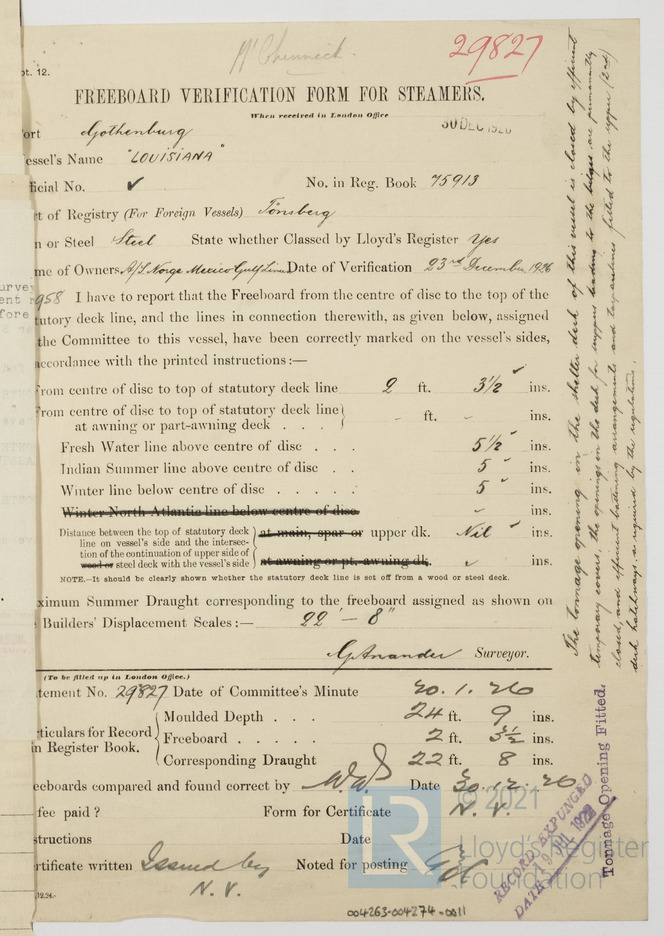 29827
pt. 12.
FREEBOARD VERIFICATION FORM FOR STEAMERS.
When received in London Office
30 DEC 1926
ort Gothenburg
essel's Name "LOUISIANA"
ficial No. ✓ No. in Reg. Book 75913
t of Registry (For Foreign Vessels) Tönsberg
n or Steel Steel State whether Classed by Lloyd's Register Yes
me of Owners A/S Norge Mexico Gulf Line Date of Verification 23rd December 1926
958 I have to report that the Freeboard from the centre of disc to the top of the
tutory deck line, and the lines in connection therewith, as given below, assigned
the Committee to this vessel, have been correctly marked on the vessel's sides,
accordance with the printed instructions:—
From centre of disc to top of statutory deck line 2 ft. 3½ ins.
From centre of disc to top of statutory deck line
at awning or part-awning deck . . . - ft. - ins.
Fresh Water line above centre of disc . . . 5½ ins.
Indian Summer line above centre of disc . . 5 ins.
Winter line below centre of disc . . . . . 5 ins.
Winter North Atlantic line below centre of disc. - ins.
Distance between the top of statutory deck
line on vessel's side and the intersec-
tion of the continuation of upper side of
wood or steel deck with the vessel's side
at main, spar or upper dk. Nil ins.
at awning or pt. awning dk. ✓ ins.
NOTE.—It should be clearly shown whether the statutory deck line is set off from a wood or steel deck.
ximum Summer Draught corresponding to the freeboard assigned as shown on
Builders' Displacement Scales:— 22' - 8"
Surveyor.
(To be filled up in London Office.)
tement No. 29827 Date of Committee's Minute 20. 1. 26
rticulars for Record
in Register Book.
Moulded Depth . . . 24 ft. 9 ins.
Freeboard . . . . . 2 ft. 3½ ins.
Corresponding Draught 22 ft. 8 ins.
eeboards compared and found correct by Date 30. 12. 26
fee paid ? Form for Certificate N. V.
structions Date
rtificate written Issued by Noted for posting
N. V.
12.24.
004263-004274-0011
The tonnage opening in the shelter deck of this vessel is closed by efficient
temporary covers, the openings in the deck for scuppers leading to the bilges are permanently
closed, and efficient battening arrangements and tarpaulines fitted to the upper (2nd)
deck hatchways as required by the regulations.
Tonnage Opening Fitted.
RECORD EXPUNGED
DATE 19 JUL
© 2021
Lloyd's Register
Foundation
LR
urvey
ent r
fore